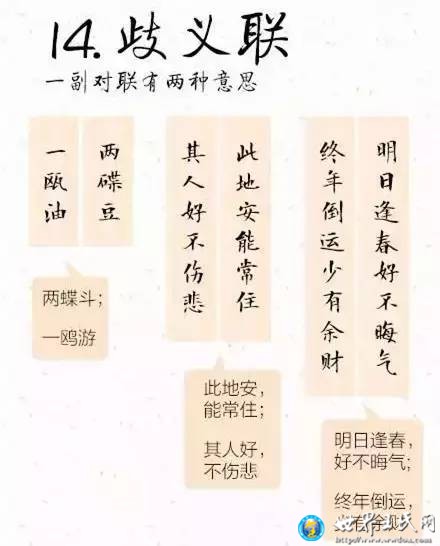 14.歧义联
一副对联有两种意思
两碟豆
一瓯油
两蝶斗；
一鸥游
此地安能常住
其人好不伤悲
此地安，
能常住；
其人好，
不伤悲
明日逢春好不晦气
终年倒运少有余财
明日逢春，
好不晦气；
终年倒运，
有余财